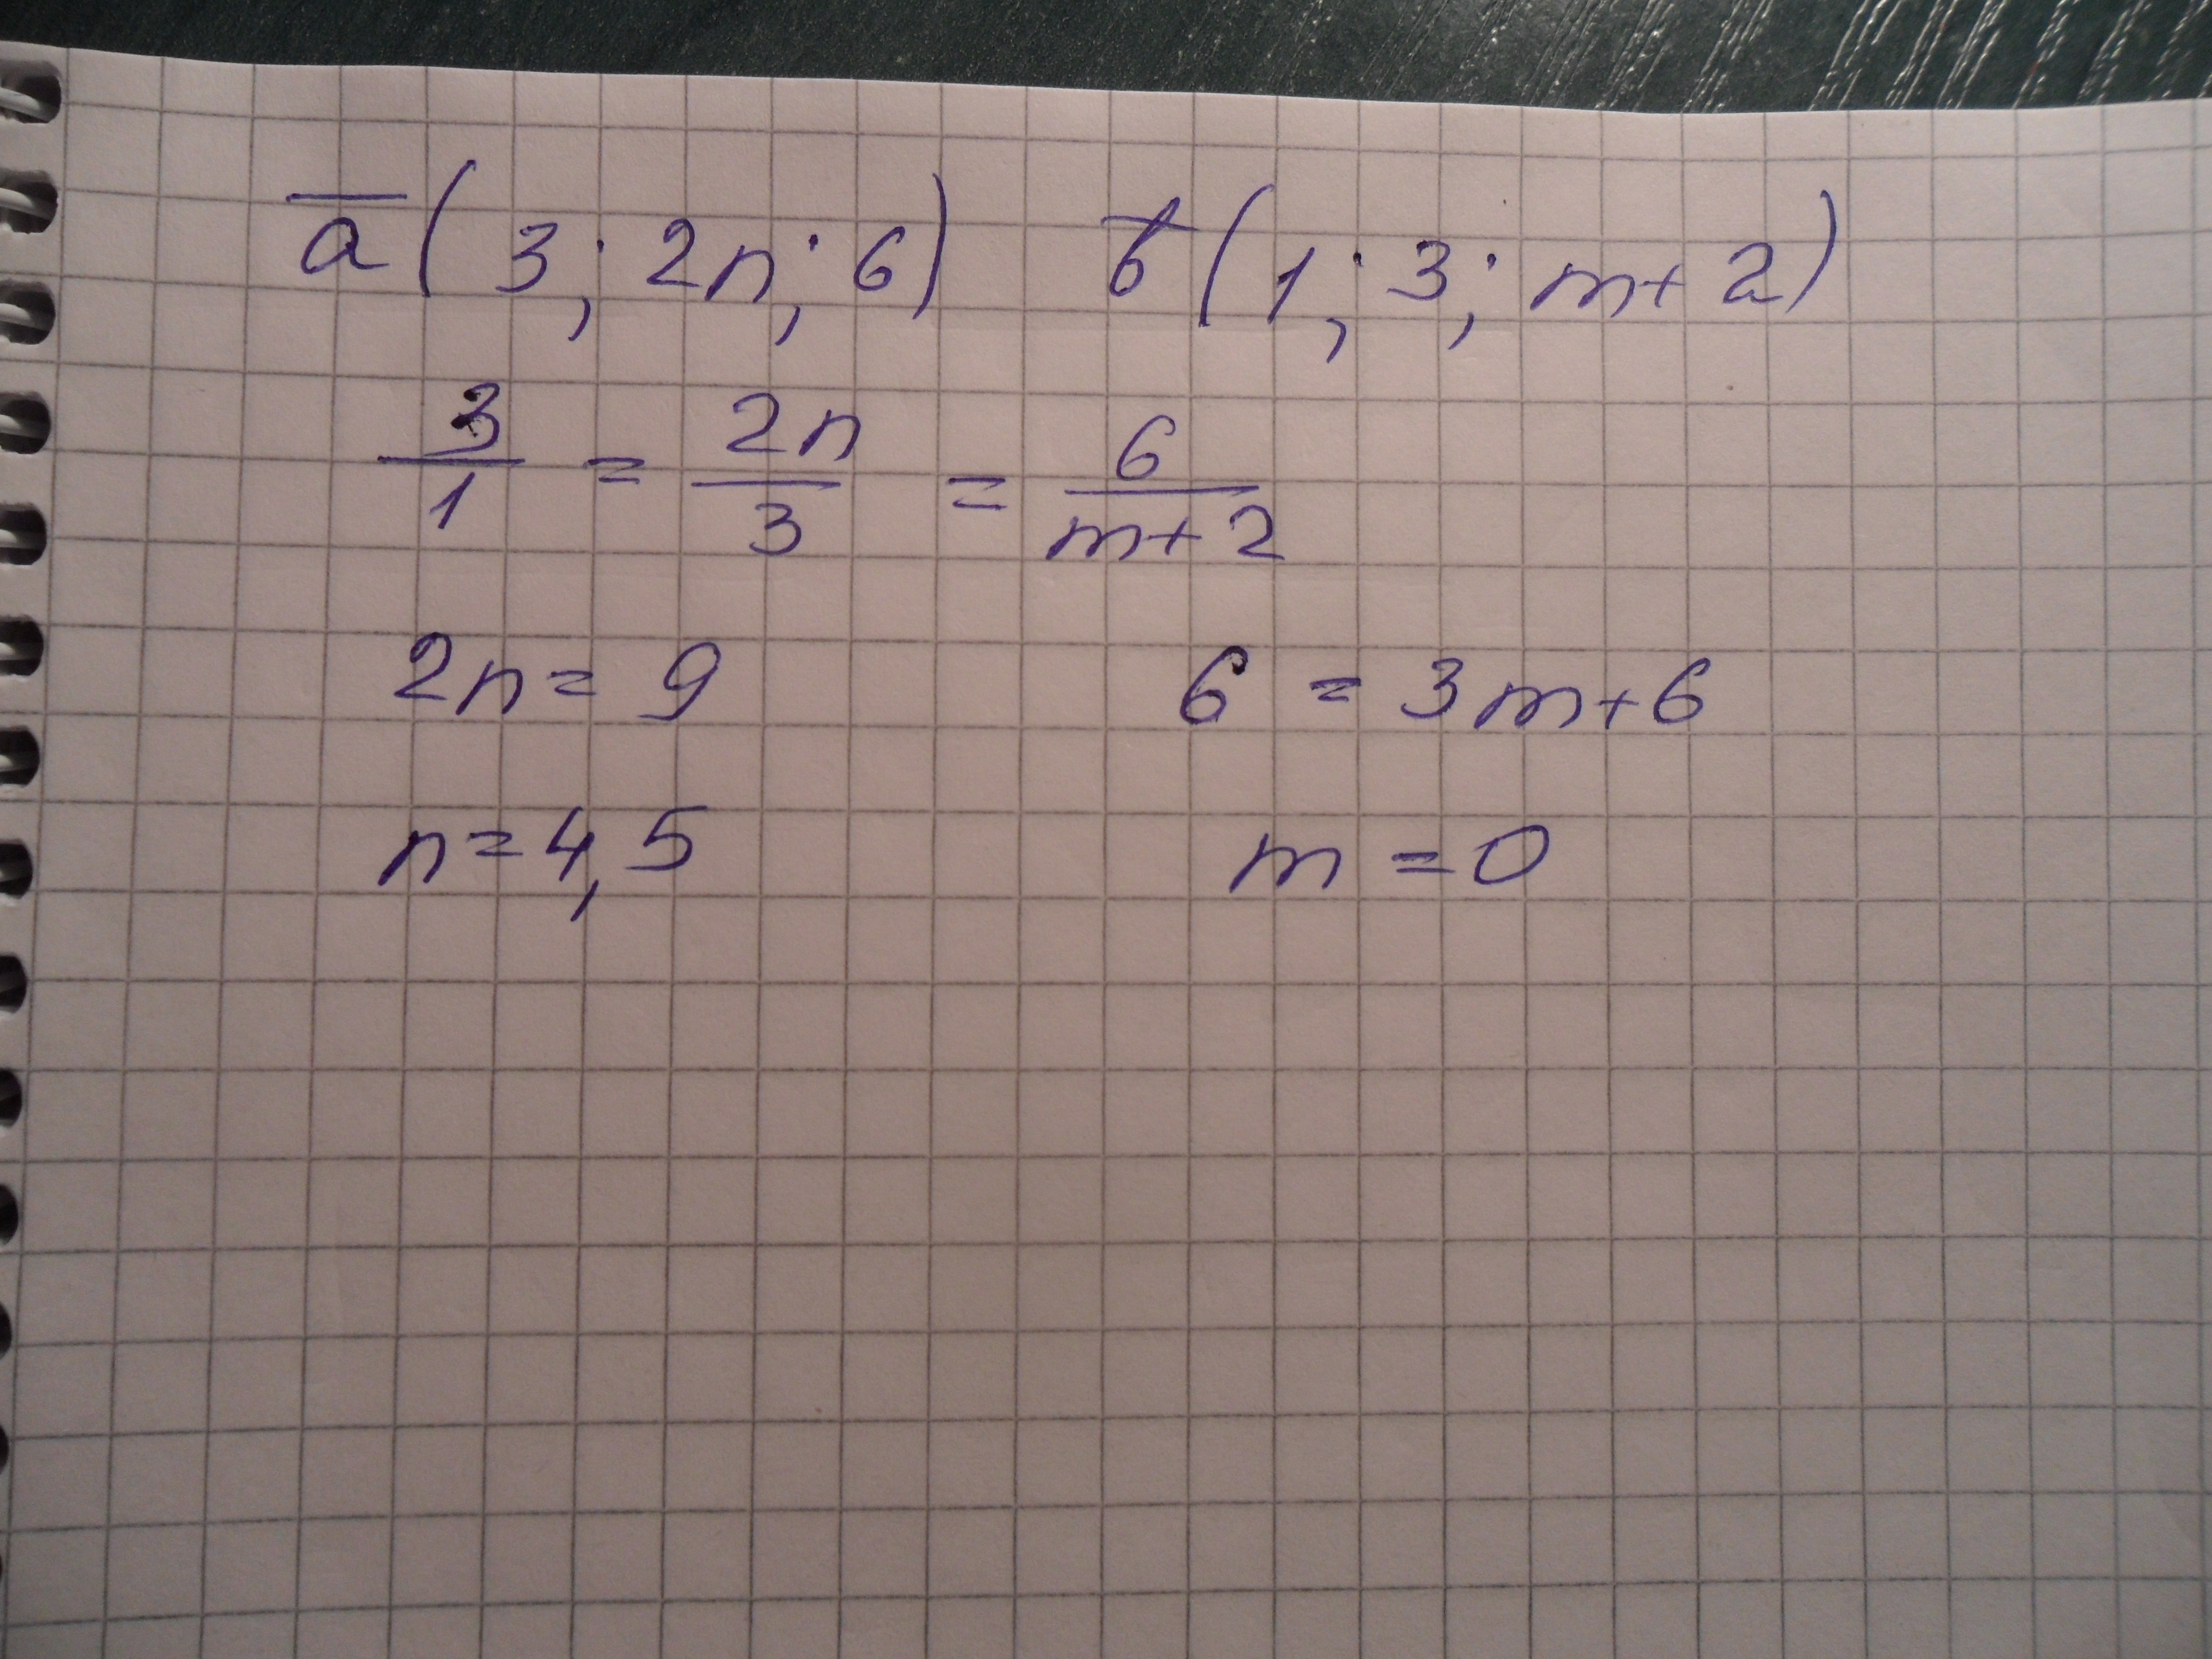 a̅ (3; 2n; 6)  b̅ (1; 3; m+2)
3/1 = 2n/3 = 6/(m+2)
2n = 9  6 = 3m+6
n = 4,5  m = 0